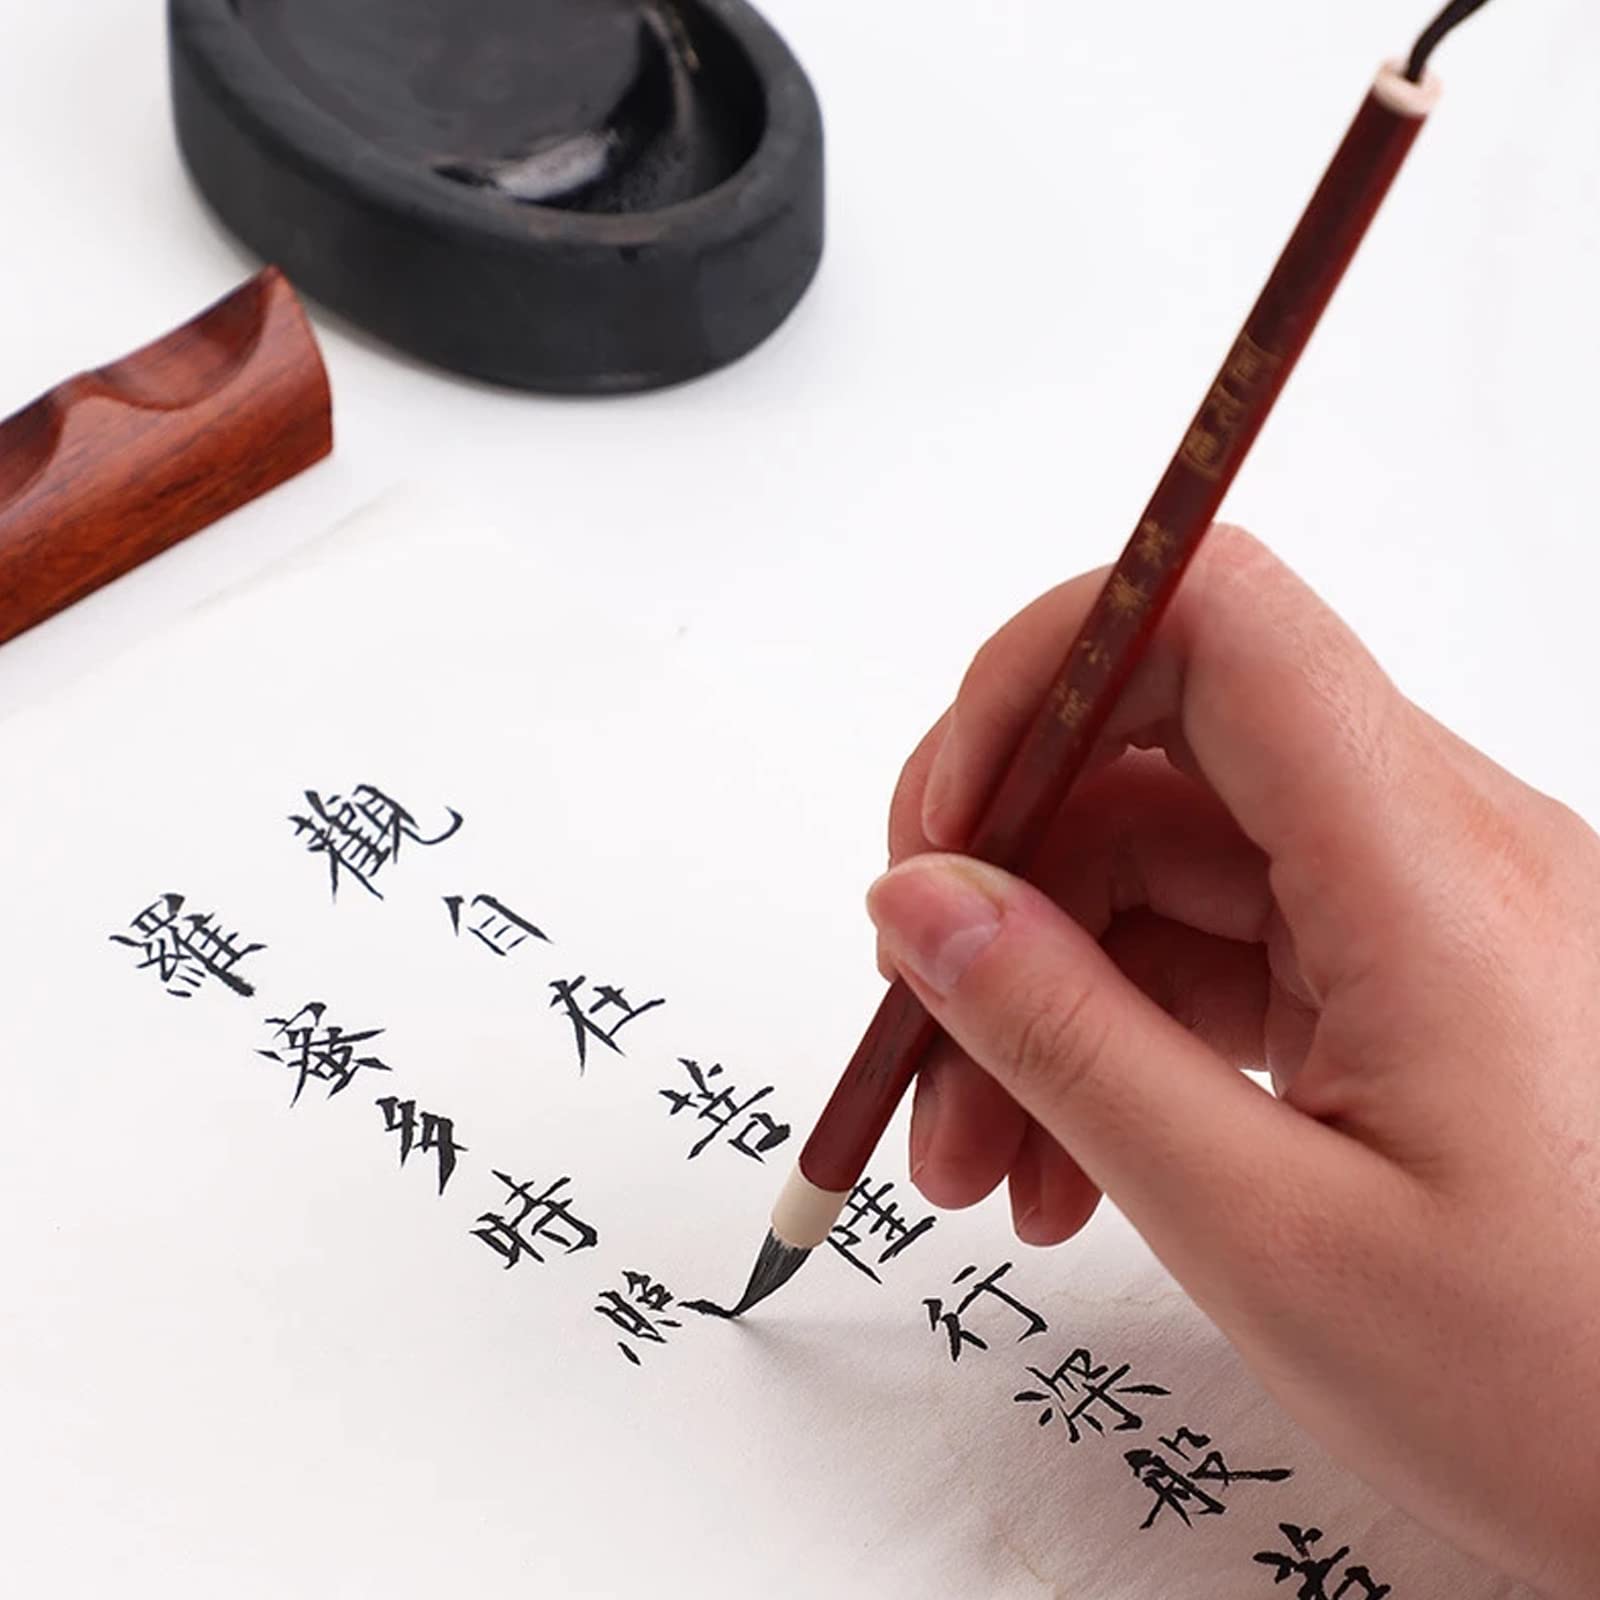 觀自在菩薩行深般若
羅蜜多時照